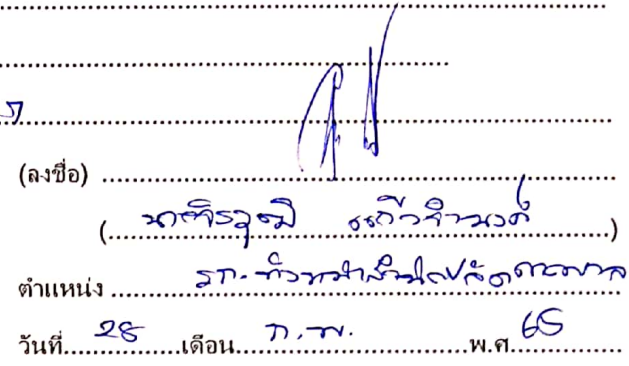 (ลงชื่อ)
(นายจิรวุฒิ แก้วจำนงค์)
ตำแหน่ง รก.หัวหน้าสำนักปลัดเทศบาล
วันที่ 28 เดือน ก.พ. พ.ศ. 65